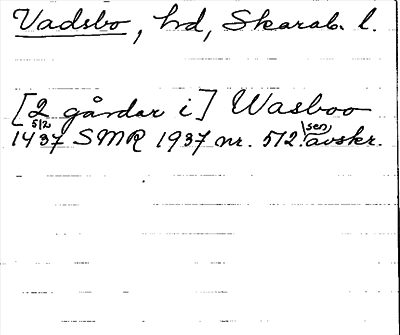 Vadsbo, hd, Skarab. l.
[2 gårdar i] Wasboo
1437 5/2 SMR 1937 nr. 512. sen avskr.